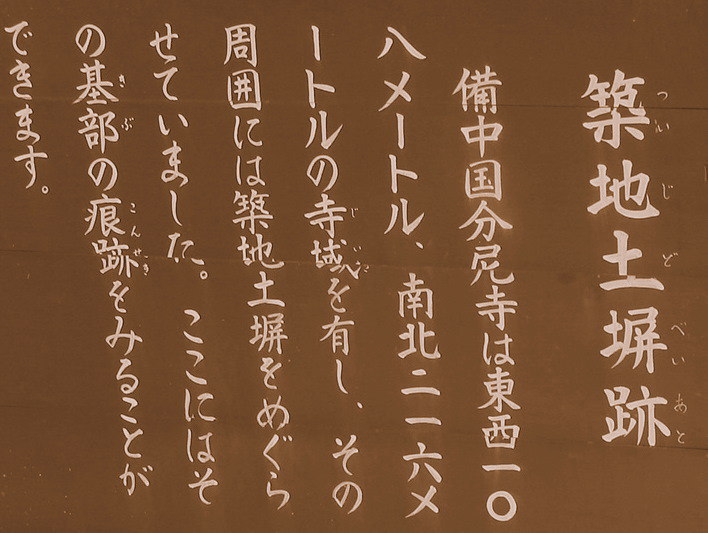 築地土塀跡
ついじどべいあと
備中国分尼寺は東西一〇
八メートル、南北二一六メ
ートルの寺域を有し、その
じいき
周囲には築地土塀をめぐら
せていました。ここにはそ
の基部の痕跡をみることが
きぶ こんせき
できます。